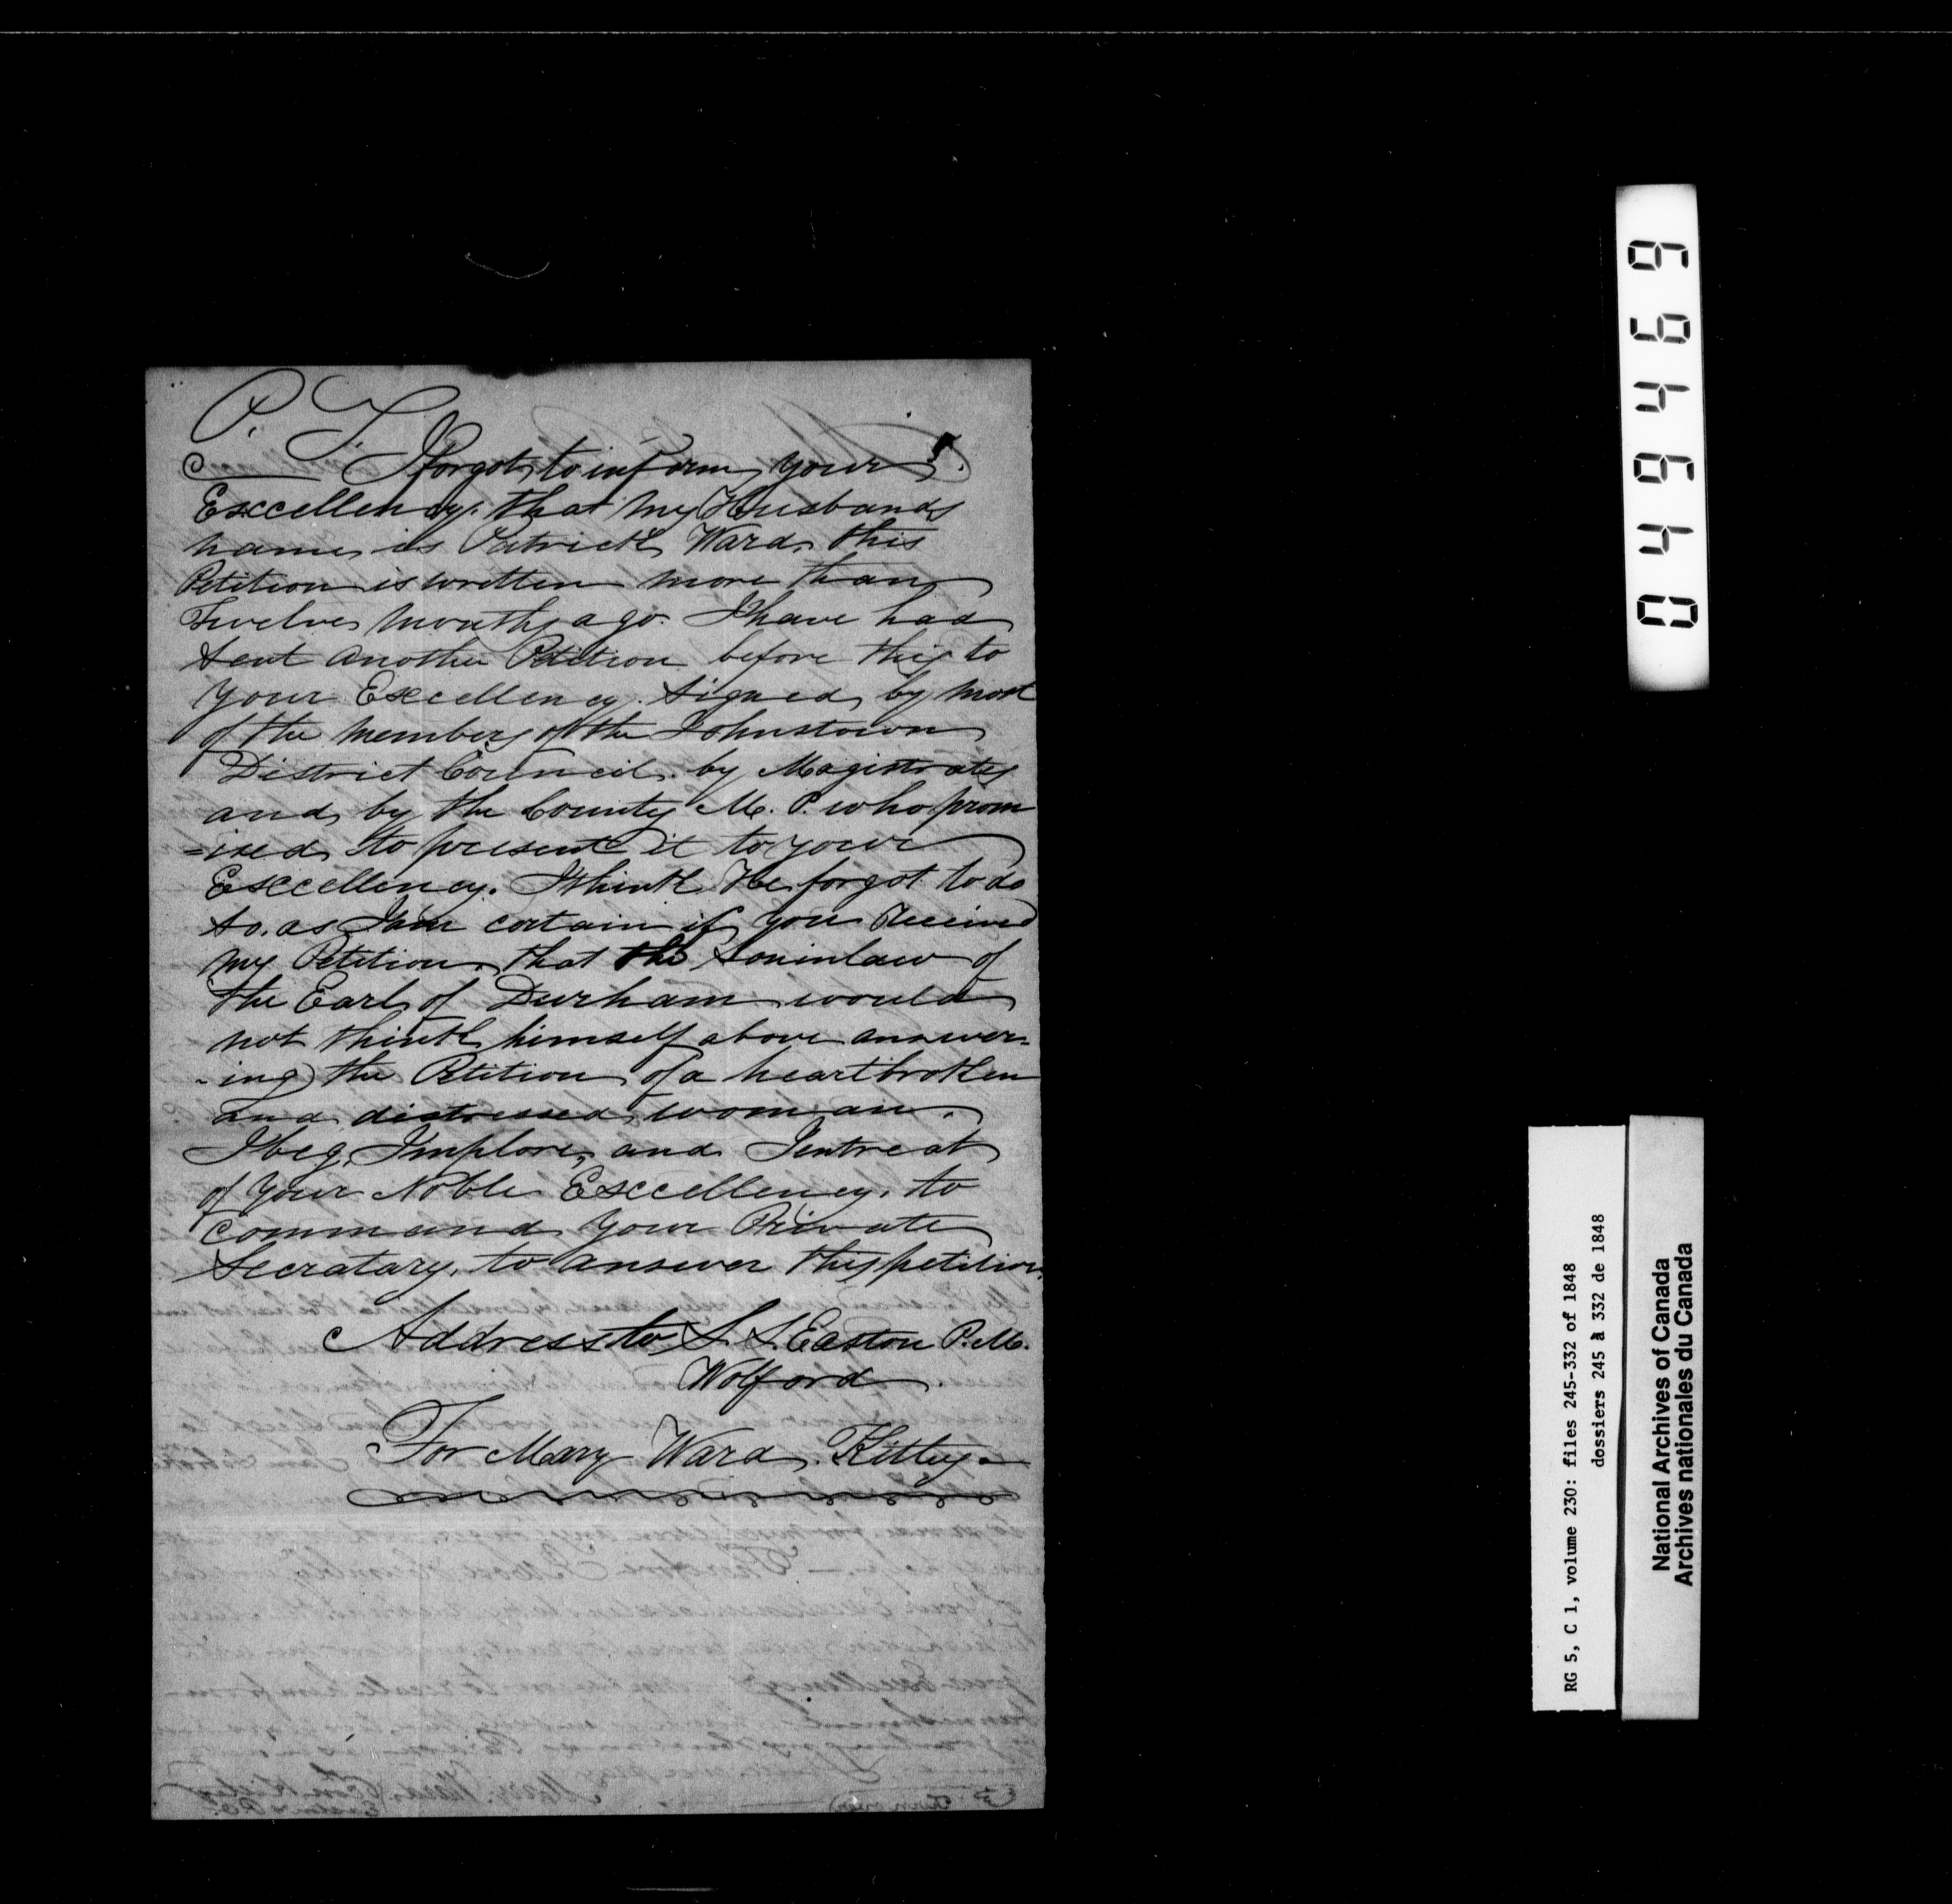 P. S.
I forgot to inform your
Exccellency. that my Husbands
name is Patrick Ward. this
Petition is wretten more than
Twelve months ago. I have had
sent another Petition before this to
your Exccellency. signed by most
of the members of the Johnstown
District Council. by Magistrates
and by the County M. P. who prom
=ised to present it to your
Exccellency. I think He forgot to do
so. as I am certain if you Received
my Petition. that the soninlaw of
the Earl of Durham would
not think himself above answer=
-ing the Petition of a heartbroken
and distressed woman.
I beg, Implore, and Intreat
of your Noble Exccellency. to
command your Private
Secratary. to answer this petition.
Address to S. S. Easton P.M.
Wolford.
For Mary Ward. Kitley.
National Archives of Canada
Archives nationales du Canada
RG 5, C 1, volume 230: files 245-332 of 1848
dossiers 245 à 332 de 1848